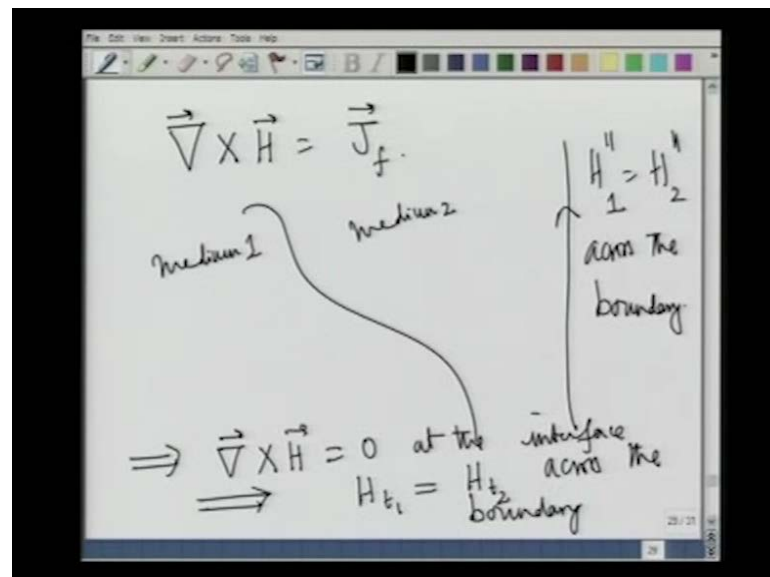 File Edit View Insert Actions Tools Help
B I
∇⃗ X H⃗ = J⃗f.
medium 1
medium 2
H₁" = H₂"
across the
boundary
⟹ ∇⃗ X H⃗ = 0 at the interface
⟹ Ht₁ = Ht₂ across the
boundary
29/31
29